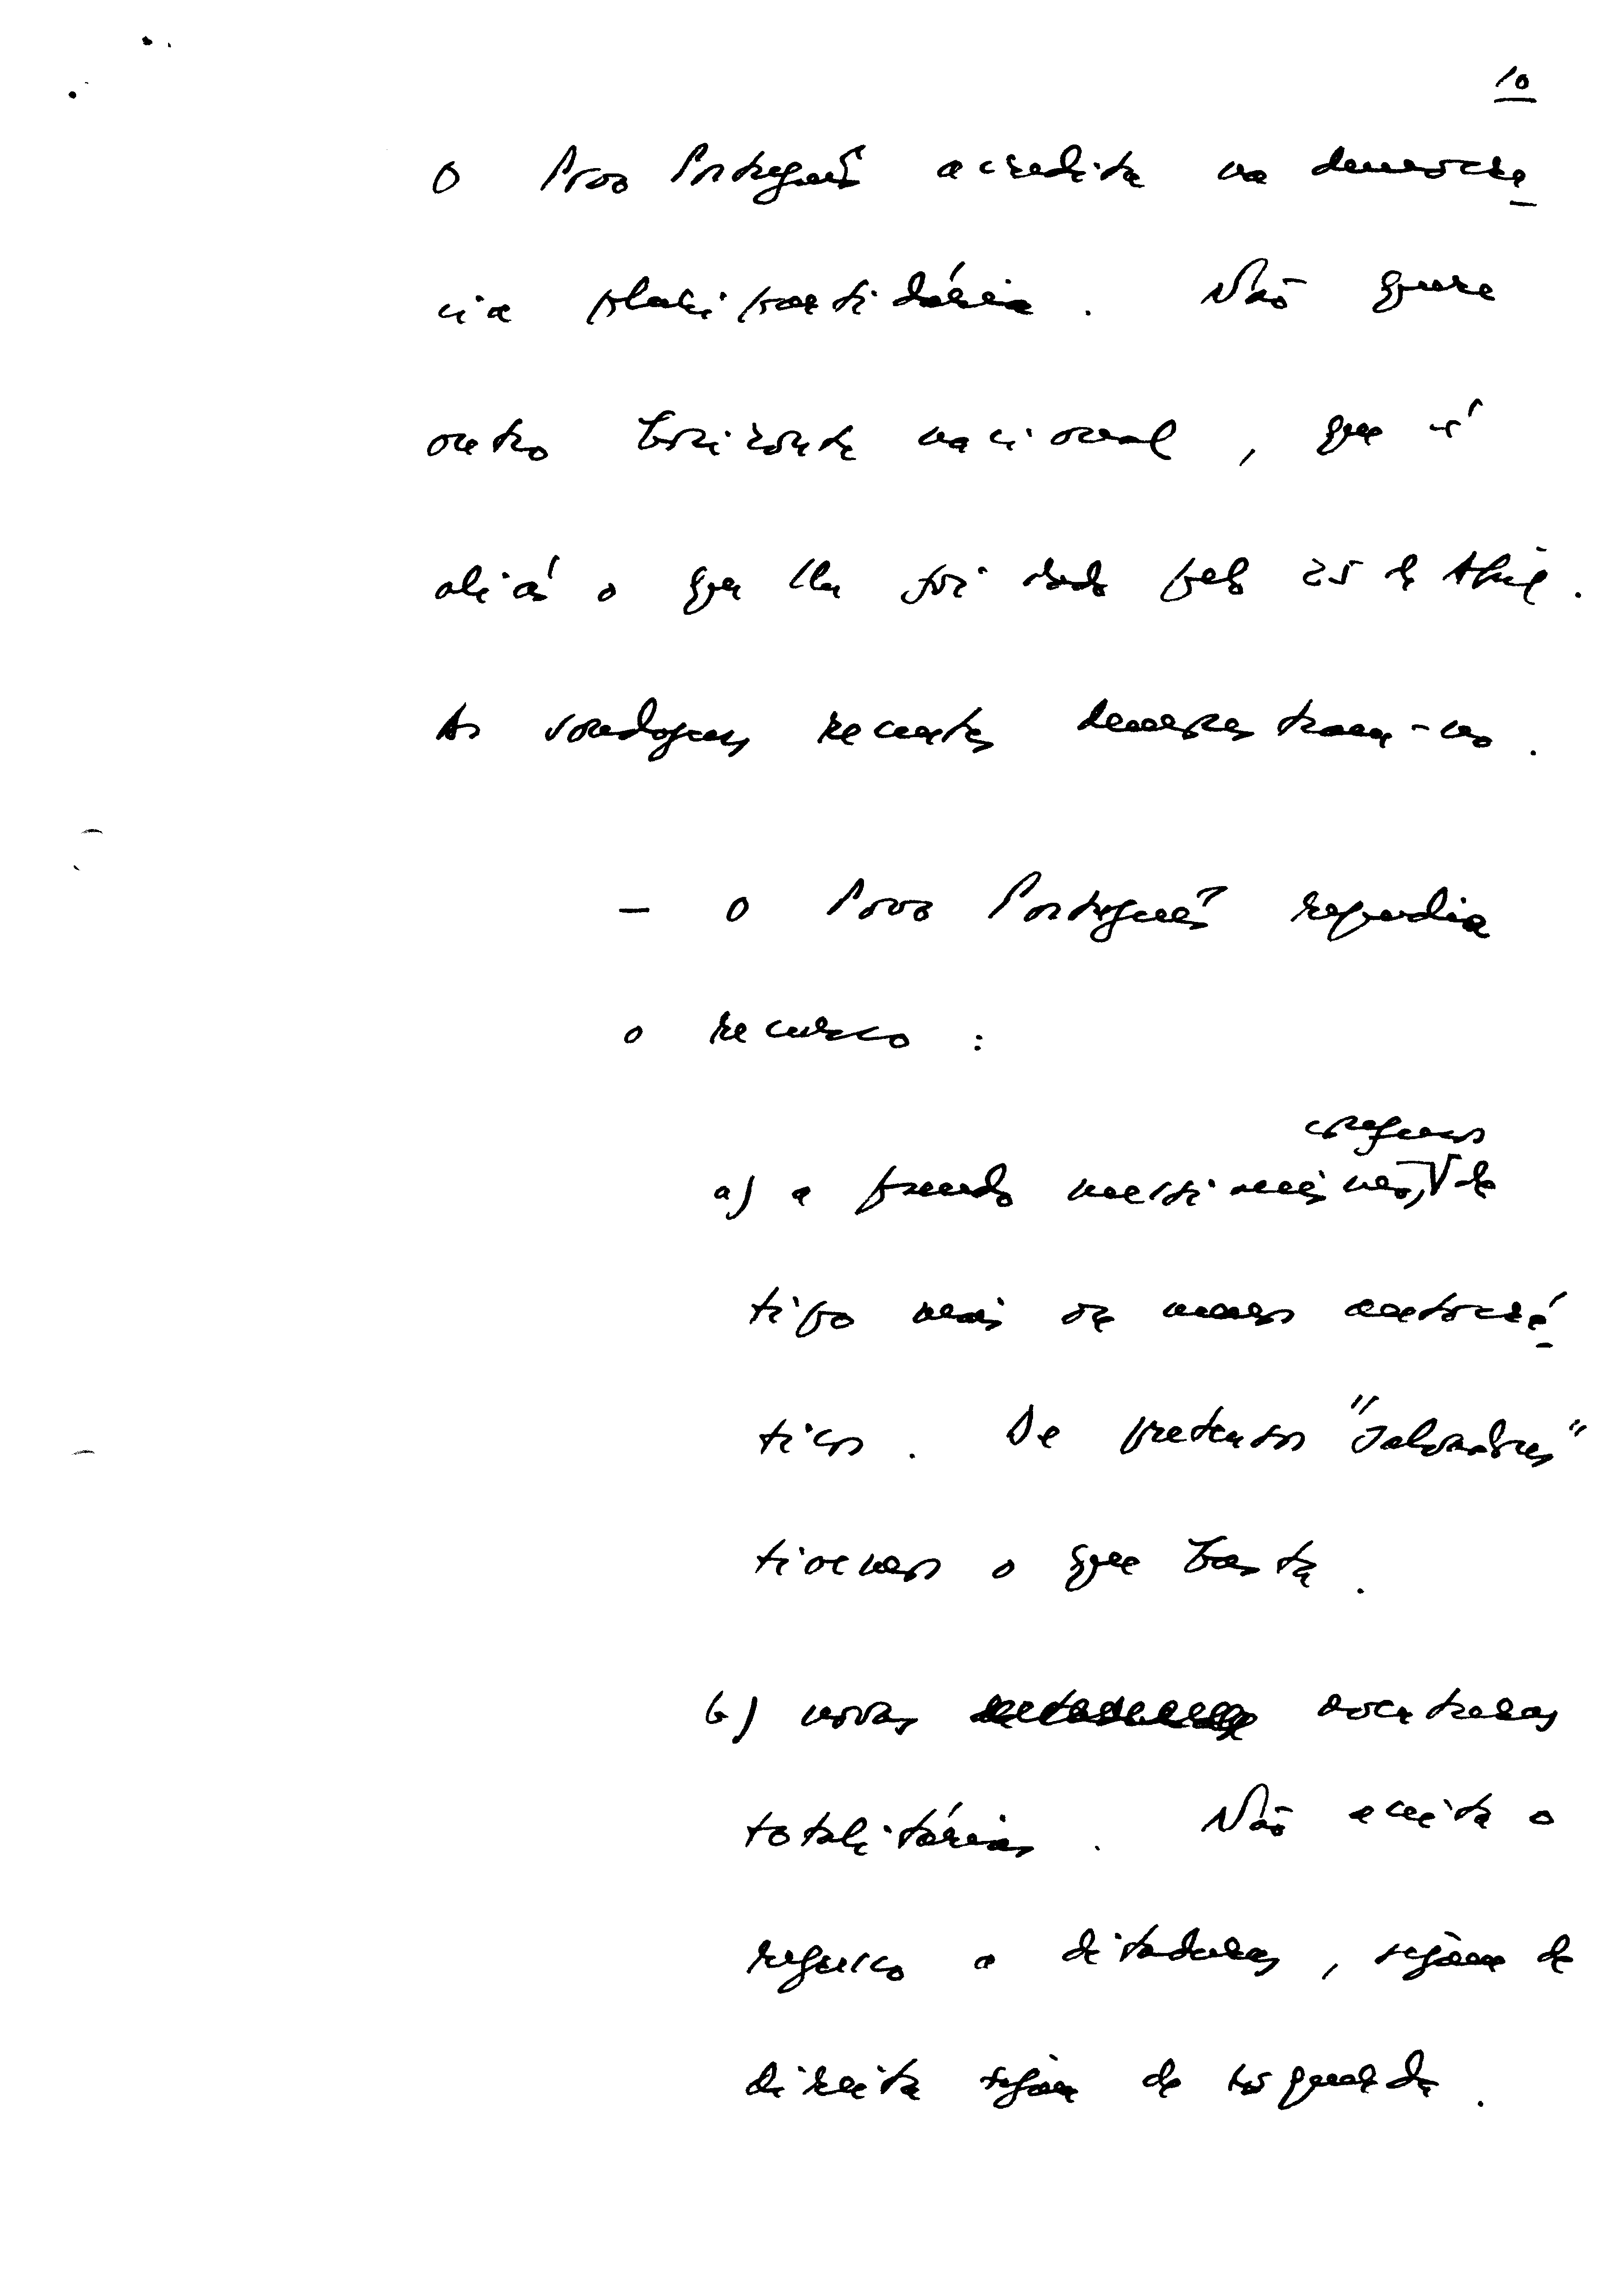 10
O Povo Português acredita na democra
cia pluripartidária. Não quere
outro horizonte nacional, que é
aliás o que lhe foi dado pelo 25 de Abril.
As sondagens recentes demonstram-no.
— O Povo Português repudia
o recurso:
cesarismos
a) a
tipo mais ou menos autocrá
tico. De pretensos "Salvadores"
tivemos o que basta.
b) novas aventuras
totalitárias. Não aceita o
regresso a ditaduras, sejam de
direita sejam de esquerda.